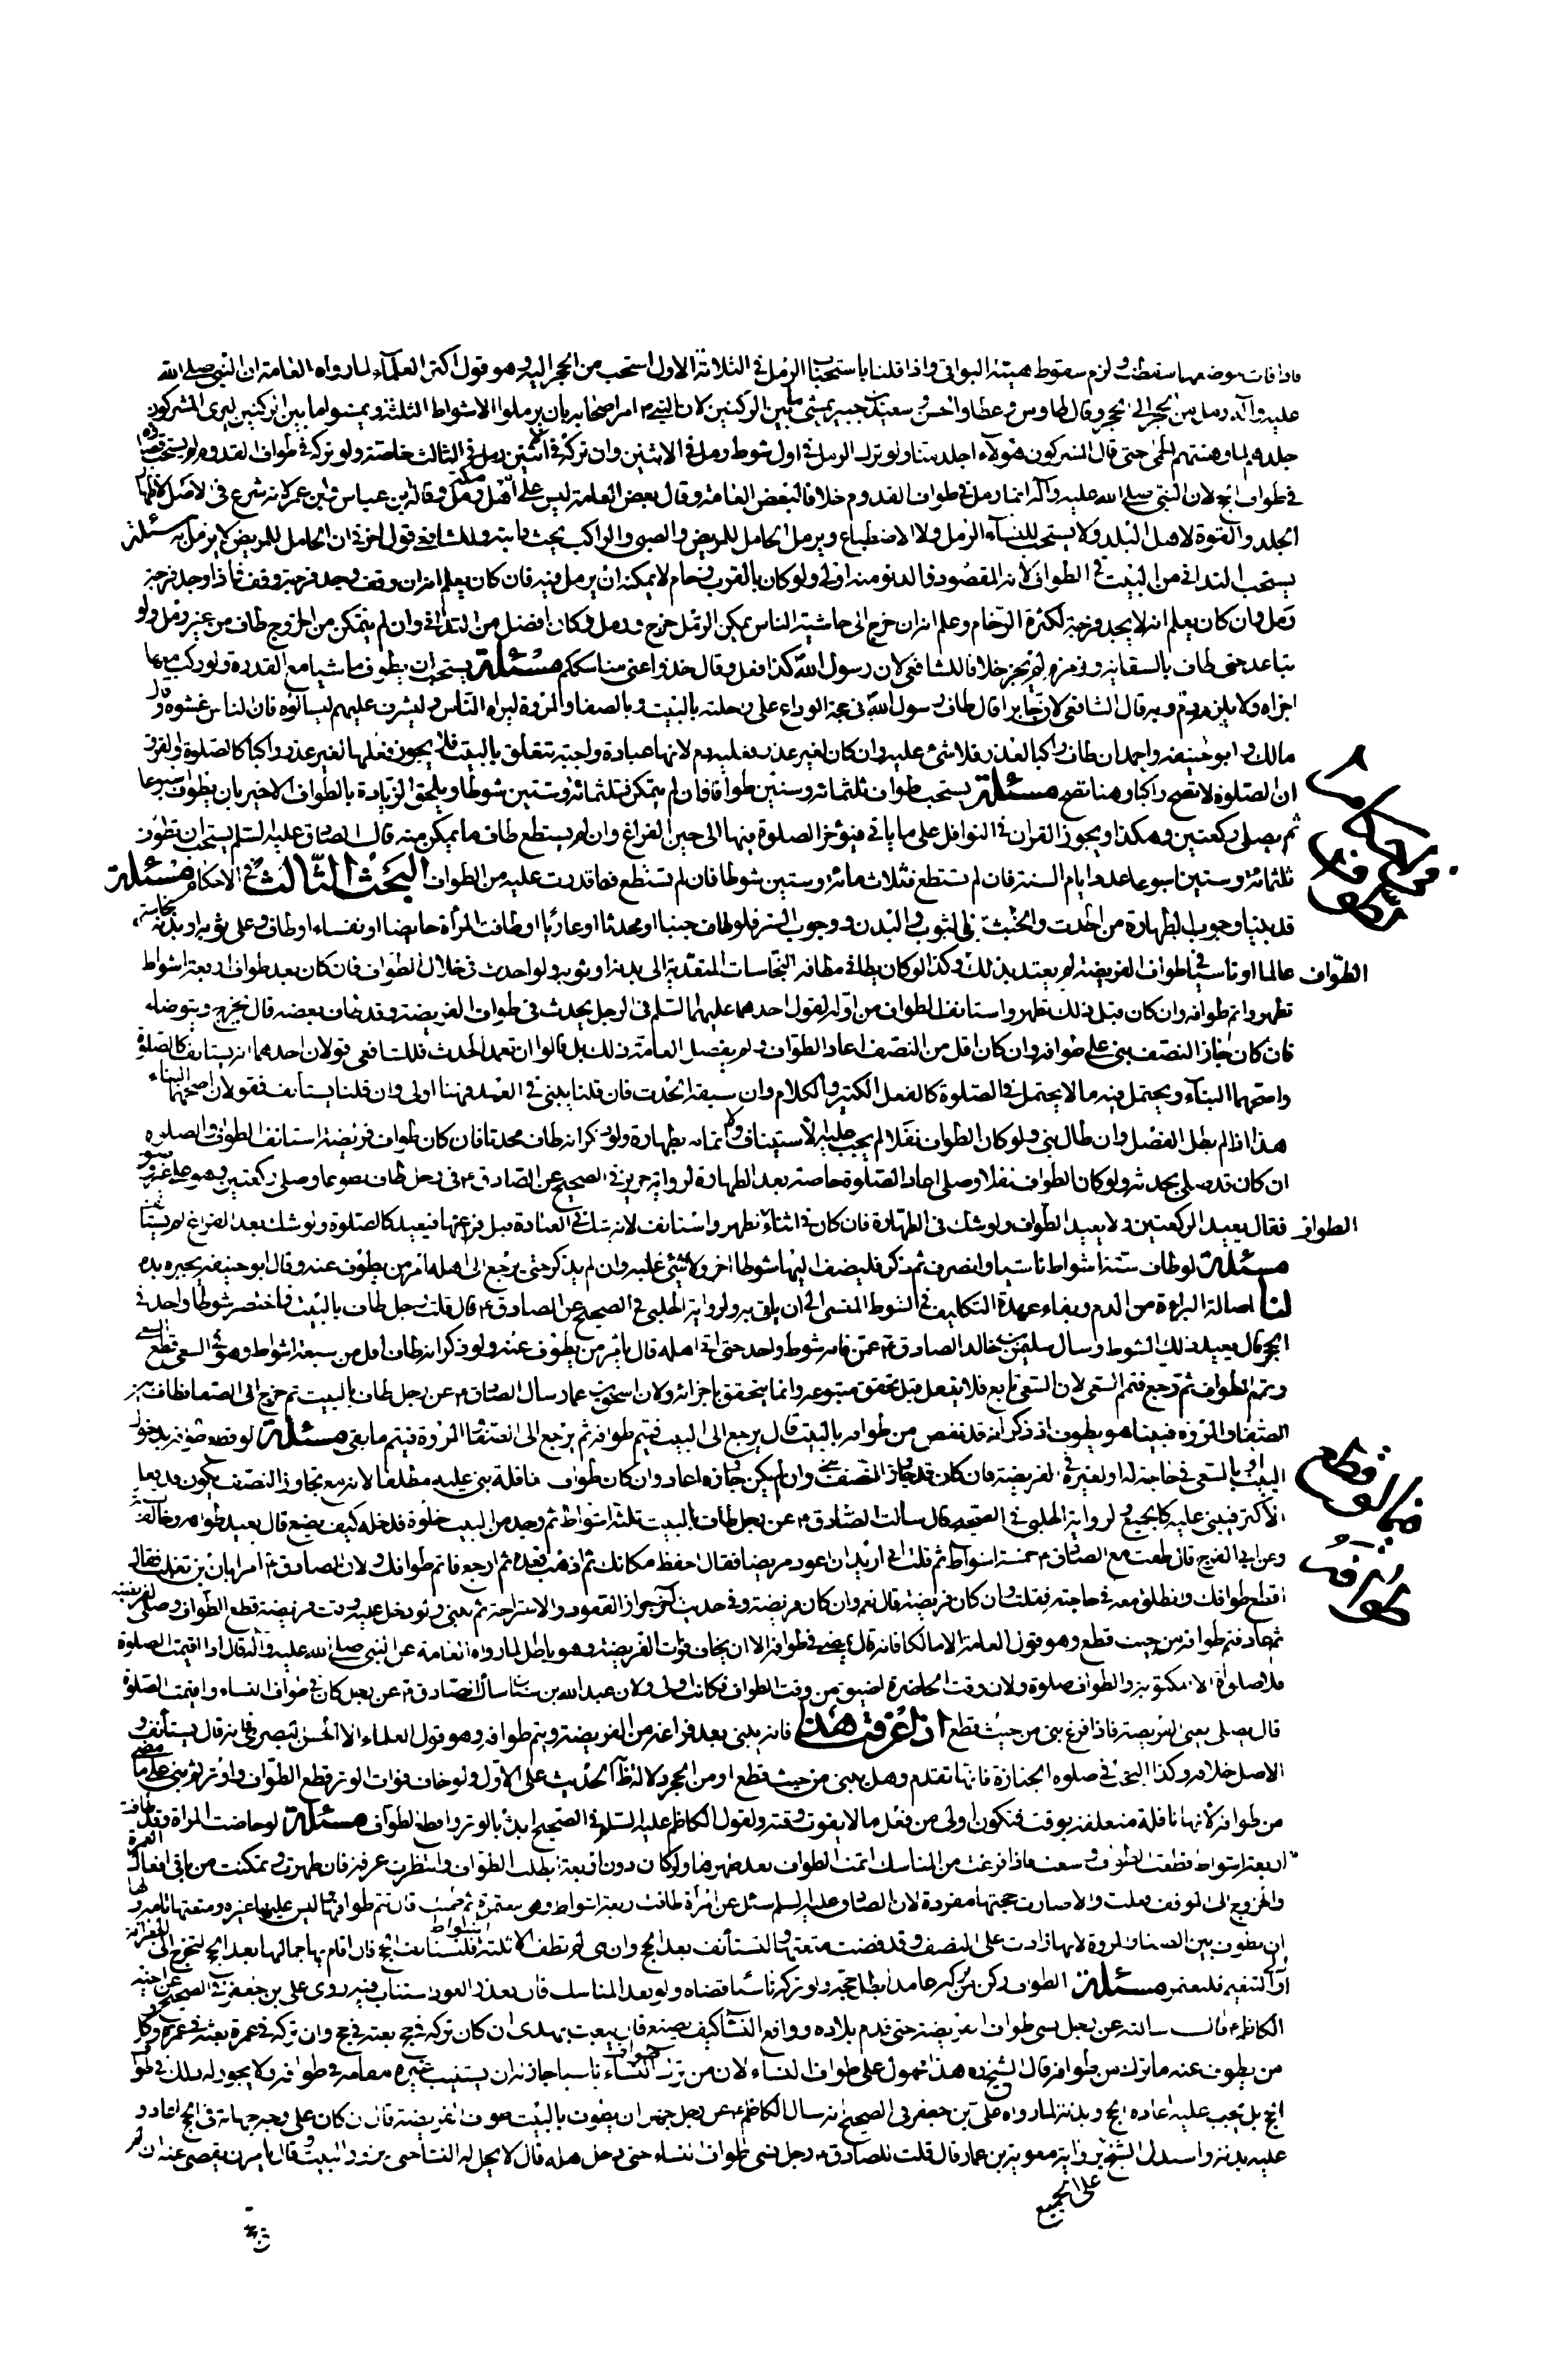 فاذا فات موضعها سقطت ولزم سقوط هيئة البواقي واذا قلنا باستحباب الرمل في الثلاثة الاول استحب من الحجر اليه وهو قول اكثر العلماء لما رواه العامة ان النبي صلى الله
عليه وآله رمل من الحجر الى الحجر وقال طاوس وعطا والحسن وسعيد بن جبير يمشي ما بين الركنين لان النبي امر اصحابه بان يرملوا الاشواط الثلثة ويمشوا ما بين الركنين ليرى المشركون
جلدهم لما وهنتهم الحمى حتى قال المشركون هؤلاء اجلد منا ولو ترك الرمل في اول شوط رمل في الاثنين وان تركه في اثنين رمل في الثالث خاصة ولو تركه في طواف القدوم لم يستحب قضاؤه
في طواف الحج لان النبي صلى الله عليه وآله انما رمل في طواف القدوم خلافا لبعض العامة وقال بعض العامة ليس على اهل مكة رمل وقاله ابن عباس وابن عمر لانه شرع في الاصل لاظهار
الجلد والقوة لاهل البلد ولا يستحب للنساء الرمل ولا الاضطباع ويرمل الحامل للمريض والصبي والراكب يحث دابته وللشافعي قول اخر في ان الحامل للمريض لا يرمل به مسئلة
يستحب التداني من البيت في الطواف لانه المقصود فالدنو منه اولى ولو كان بالقرب زحام لا يمكنه ان يرمل فيه فان كان يعلم انه ان وقف وجد فرجة وقف فاذا وجد فرجة
رمل وان كان يعلم انه لا يجد فرجة لكثرة الزحام وعلم انه ان خرج الى حاشية الناس تمكن من الرمل خرج ورمل وكان افضل من التداني وان لم يتمكن من الخروج طاف من غير رمل ولو
تباعد حتى طاف بالسقاية وزمزم لم يجز خلافا للشافعي لان رسول الله كذا فعل وقال خذوا عني مناسككم مسئلة يستحب ان يطوف ماشيا مع القدرة ولو ركب معها
اجزأه ولا يلزمه دم وبه قال الشافعي لان جابرا قال طاف رسول الله في حجة الوداع على راحلته بالبيت وبالصفا والمروة ليراه الناس وليشرف عليهم ليسألوه فان الناس غشوه وقال
مالك وابو حنيفة واحمد ان طاف راكبا لعذر فلا شيء عليه وان كان لغير عذر فعليه دم لانها عبادة واجبة تتعلق بالبيت فلا يجوز فعلها لغير عذر راكبا كالصلوة والفرق
ان الصلوة لا تصح راكبا وهنا تصح مسئلة يستحب طواف ثلثمائة وستين طوافا فان لم يتمكن فثلثمائة وستين شوطا ويلحق الزيادة بالطواف الاخير بان يطوف اسبوعا
ثم يصلي ركعتين وهكذا ويجوز القران في النوافل على ما ياتي فيؤخر الصلوة فيها الى حين الفراغ وان لم يستطع طاف ما يمكن منه قال الصادق عليه السلم يستحب ان تطوف
ثلثمائة وستين اسبوعا عدد ايام السنة فان لم تستطع فثلاث مائة وستين شوطا فان لم تستطع فما قدرت عليه من الطواف البحث الثالث في الاحكام مسئلة
قد بينا وجوب الطهارة من الحدث والخبث في الثوب والبدن ووجوب الستر فلو طاف جنبا او محدثا او عاريا او طافت المرأة حايضا او نفساء او طاف وعلى ثوبه او بدنه نجاسة
الطواف عالما او ناسيا في طواف الفريضة لم يعتد بذلك وكذا لو كان يطأ في مطافه النجاسات المتعدية الى بدنه او ثوبه ولو احدث في خلال الطواف فان كان بعد طواف اربعة اشواط
تطهر واتم طوافه وان كان قبل ذلك تطهر واستانف الطواف من اوله لقول احدهما عليهما السلم في الرجل يحدث في طواف الفريضة وقد طاف بعضه قال يخرج ويتوضا
فان كان جاز النصف بنى على طوافه وان كان اقل من النصف اعاد الطواف ولم يفصل العامة ذلك بل قالوا ان تعمد الحدث فللشافعي قولان احدهما انه يستانف كالصلوة
واصحهما البناء ويحتمل فيه ما لا يحتمل في الصلوة كالفعل الكثير والكلام وان سبقه الحدث فان قلنا يبني في العمد فهنا اولى وان قلنا يستانف فقولان اصحهما البناء
هذا اذا لم يطل الفصل وان طال بنى ولو كان الطواف نفلا لم يجب عليه الاستيناف ولا اتمامه بطهارة ولو ذكر انه طاف محدثا فان كان طواف فريضة استانف الطواف والصلوة
ان كان قد صلى بحدثه ولو كان الطواف نفلا وصلى اعاد الصلوة خاصة بعد الطهارة لرواية حريز في الصحيح عن الصادق في رجل طاف تطوعا وصلى ركعتين وهو على غير وضوء
الطواف فقال يعيد الركعتين ولا يعيد الطواف ولو شك في الطهارة فان كان في اثنائه تطهر واستانف لانه شك في العبادة قبل فراغها فيعيد كالصلوة ولو شك بعد الفراغ لم يستانف
مسئلة لو طاف ستة اشواط ناسيا وانصرف ثم ذكر فليضف اليها شوطا اخر ولا شيء عليه وان لم يذكر حتى يرجع الى اهله امر من يطوف عنه وقال ابو حنيفة يجبره بدم
لنا اصالة البراءة من الدم وبقاء عهدة التكليف في الشوط المنسي الى ان ياتي به ولرواية الحلبي في الصحيح عن الصادق قال قلت رجل طاف بالبيت فاختصر شوطا واحدا في
الحجر قال يعيد ذلك الشوط وسال سليمن بن خالد الصادق عمن فاته شوط واحد حتى اتى اهله قال يامر من يطوف عنه ولو ذكر انه طاف اقل من سبعة اشواط وهو في السعي قطع السعي
وتمم الطواف ثم رجع فتمم السعي لان السعي تابع فلا يفعل قبل تحقق متبوعه وانما يتحقق باجزائه ولان اسحق بن عمار سال الصادق عن رجل طاف بالبيت ثم خرج الى الصفا فطاف بين
الصفا والمروة فبينا هو يطوف اذ ذكر انه قد نقص من طوافه بالبيت قال يرجع الى البيت فيتم طوافه ثم يرجع الى الصفا والمروة فيتم ما بقي مسئلة لو قطع طوافه بدخول
البيت او بالسعي في حاجة له او لغيره في الفريضة فان كان قد جاز النصف بنى وان لم يكن جازه اعاد وان كان طواف نافلة بنى عليه مطلقا لانه مع تجاوز النصف يكون قد فعل
الاكثر فيبني عليه كالجميع ولرواية الحلبي في الصحيح قال سالت الصادق عن رجل طاف بالبيت ثلثة اشواط ثم وجد من البيت خلوة فدخله كيف يصنع قال يعيد طوافه وخالف
وعن ابي الفرج قال طفت مع الصادق خمسة اشواط ثم قلت اني اريد ان اعود مريضا فقال احفظ مكانك ثم اذهب فعده ثم ارجع فاتم طوافك ولان الصادق امر ابان بن تغلب فقال
اقطع طوافك وانطلق معه في حاجته فقلت وان كان فريضة قال نعم وان كان فريضة وفي حديث اخر جواز القعود والاستراحة ثم يبني ولو دخل عليه وقت فريضة قطع الطواف وصلى الفريضة
ثم عاد فتم طوافه من حيث قطع وهو قول العامة الا مالكا فانه قال يمضي في طوافه الا ان يخاف فوات الفريضة وهو باطل لما رواه العامة عن النبي صلى الله عليه وآله قال اذا اقيمت الصلوة
فلا صلوة الا المكتوبة والطواف صلوة ولان وقت الحاضرة اضيق من وقت الطواف فكانت اولى ولان عبد الله بن سنان سأل الصادق عن رجل كان في طواف النساء واقيمت الصلوة
قال يصلي يعني الفريضة فاذا فرغ بنى من حيث قطع اذا عرفت هذا فانه يبني بعد فراغه من الفريضة ويتم طوافه وهو قول العلماء الا الحسن البصري فانه قال يستأنف و
الاصل خلافه وكذا البحث في صلوة الجنازة فانها تقدم وهل يبني من حيث قطع او من الحجر دلالة ظاهر الحديث على الاول ولو خاف فوات الوتر قطع الطواف واوتر ثم بنى على ما مضى
من طوافه لانها نافلة متعلقة بوقت فتكون اولى من فعل ما لا يفوت وقته ولقول الكاظم عليه السلم في الصحيح ابدأ بالوتر واقطع الطواف مسئلة لو حاضت المرأة وقد طافت
اربعة اشواط قطعت الطواف وسعت فاذا فرغت من المناسك اتمت الطواف بعد طهرها ولو كان دون اربعة ابطلت الطواف وانتظرت عرفة فان طهرت وتمكنت من باقي افعال العمرة
والخروج الى الموقف فعلت والا صارت حجتها مفردة لان الصادق عليه السلم سئل عن امرأة طافت اربعة اشواط وهي معتمرة ثم طمثت قال تتم طوافها فليس عليها غيره ومتعتها تامة ولها
ان تطوف بين الصفا والمروة لانها زادت على النصف وقد قضت متعتها ولتستأنف بعد الحج وان هي لم تطف الا ثلثة اشواط فلتستانف الحج فان اقام بها جمالها بعد الحج فلتخرج الى الجعرانة
او التنعيم فلتعتمر مسئلة الطواف ركن من تركه عامدا بطل حجه ولو تركه ناسيا قضاه ولو بعد المناسك فان تعذر العود استناب فيه روى علي بن جعفر في الصحيح عن اخيه
الكاظم قال سالته عن رجل نسي طواف الفريضة حتى قدم بلاده وواقع النساء كيف يصنع قال يبعث بهدي ان كان تركه في حج بعثه في حج وان تركه في عمرة بعثه في عمرة وكل
من يطوف عنه ما ترك من طوافه قال الشيخ ره هذا محمول على طواف النساء لان من ترك طواف النساء ناسيا جاز له ان يستنيب غيره مقامه في طوافه ولا يجوز له ذلك في طواف
الحج بل يجب عليه اعادة الحج وبدنة لما رواه علي بن جعفر في الصحيح انه سال الكاظم عن رجل جهل ان يطوف بالبيت طواف الفريضة قال ان كان على وجه جهالة في الحج اعاد و
عليه بدنة واستدل الشيخ برواية معوية بن عمار قال قلت للصادق رجل نسي طواف النساء حتى دخل اهله قال لا يحل له النساء حتى يزور البيت وقال يامر من يقضي عنه ان لم
على الجميع
فيما لو قطع
طوافه